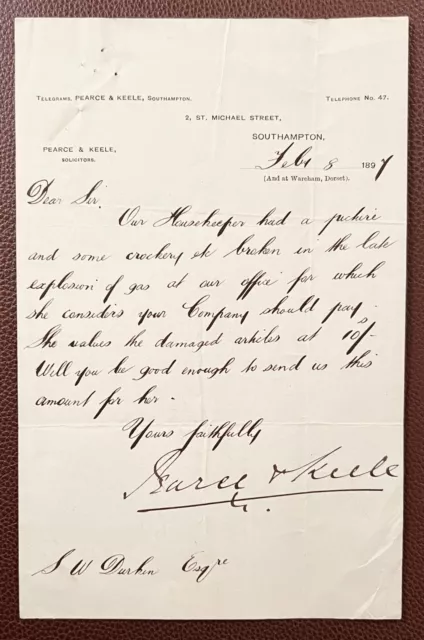 TELEGRAMS, PEARCE & KEELE, SOUTHAMPTON.
TELEPHONE NO. 47.
2, ST. MICHAEL STREET,
SOUTHAMPTON,
PEARCE & KEELE,
SOLICITORS.
Feby 8 1897
(And at Wareham, Dorset).
Dear Sir.
Our Housekeeper had a picture
and some crockery etc broken in the late
explosion of gas at our office for which
she considers your Company should pay.
She values the damaged articles at 10s/-
Will you be good enough to send us this
amount for her.
Yours faithfully
Pearce & Keele
S W Durkin Esqre